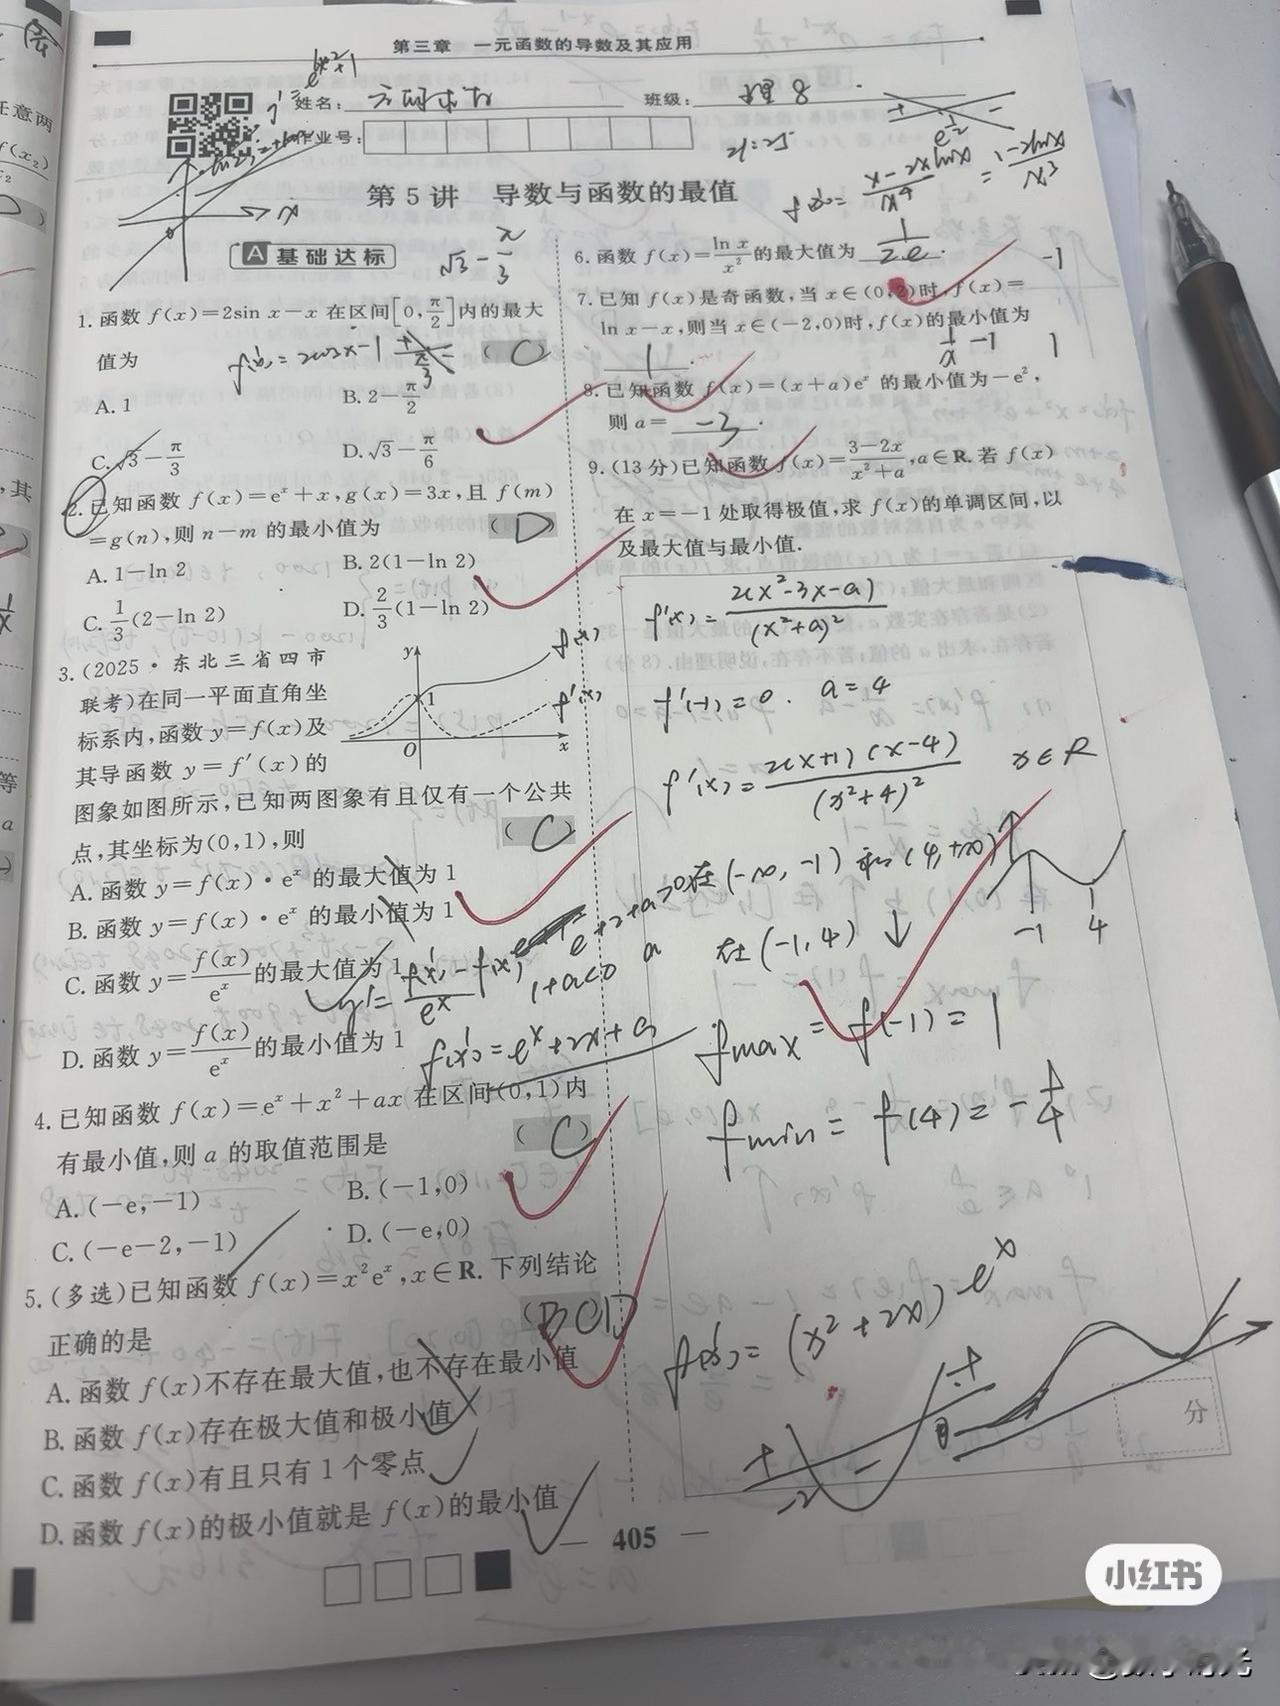 第三章 一元函数的导数及其应用
姓名:
班级:
作业号:
21:25
第 5 讲 导数与函数的最值
A 基础达标
√3-π/3
1. 函数 f(x)=2sin x-x 在区间[0,π/2]内的最大
值为 (C)
f'(x)=2cosx-1
A. 1 B. 2-π/2
C. √3-π/3 D. √3-π/6
2. 已知函数 f(x)=eˣ+x,g(x)=3x,且 f(m)
=g(n),则 n-m 的最小值为 (D)
A. 1-ln 2 B. 2(1-ln 2)
C. 1/3(2-ln 2) D. 2/3(1-ln 2)
3. (2025·东北三省四市
联考)在同一平面直角坐
标系内,函数 y=f(x)及
其导函数 y=f'(x)的
图象如图所示,已知两图象有且仅有一个公共
点,其坐标为(0,1),则 (C)
y 1 O x f(x) f'(x)
A. 函数 y=f(x)·eˣ 的最大值为 1
B. 函数 y=f(x)·eˣ 的最小值为 1
C. 函数 y=f(x)/eˣ的最大值为 1
D. 函数 y=f(x)/eˣ的最小值为 1
y'=f'(x)-f(x)/eˣ
e+2+a>0
1+a<0
f'(x)=eˣ+2x+a
4. 已知函数 f(x)=eˣ+x²+ax 在区间(0,1)内
有最小值,则 a 的取值范围是 (C)
A. (-e,-1) B. (-1,0)
C. (-e-2,-1) D. (-e,0)
5. (多选)已知函数 f(x)=x²eˣ,x∈R. 下列结论
正确的是 (BCD)
A. 函数 f(x)不存在最大值,也不存在最小值
B. 函数 f(x)存在极大值和极小值
C. 函数 f(x)有且只有 1 个零点
D. 函数 f(x)的极小值就是 f(x)的最小值
f'(x)=x-2xlnx/x⁴=1-2lnx/x³
6. 函数 f(x)=ln x/x²的最大值为 1/2e.
7. 已知 f(x)是奇函数,当 x∈(0,2)时,f(x)=
ln x-x,则当 x∈(-2,0)时,f(x)的最小值为
1.
1/x-1
8. 已知函数 f(x)=(x+a)eˣ 的最小值为-e²,
则 a= -3.
9. (13 分)已知函数 f(x)=3-2x/x²+a,a∈R. 若 f(x)
在 x=-1 处取得极值,求 f(x)的单调区间,以
及最大值与最小值.
f'(x)=2(x²-3x-a)/(x²+a)²
f'(-1)=0. a=4
f'(x)=2(x+1)(x-4)/(x²+4)² x∈R
在(-∞,-1)和(4,+∞)↑
在(-1,4)↓
-1 4
fmax=f(-1)=1
fmin=f(4)=-1/4
f'(x)=(x²+2x)·eˣ
分
— 405 —
小红书